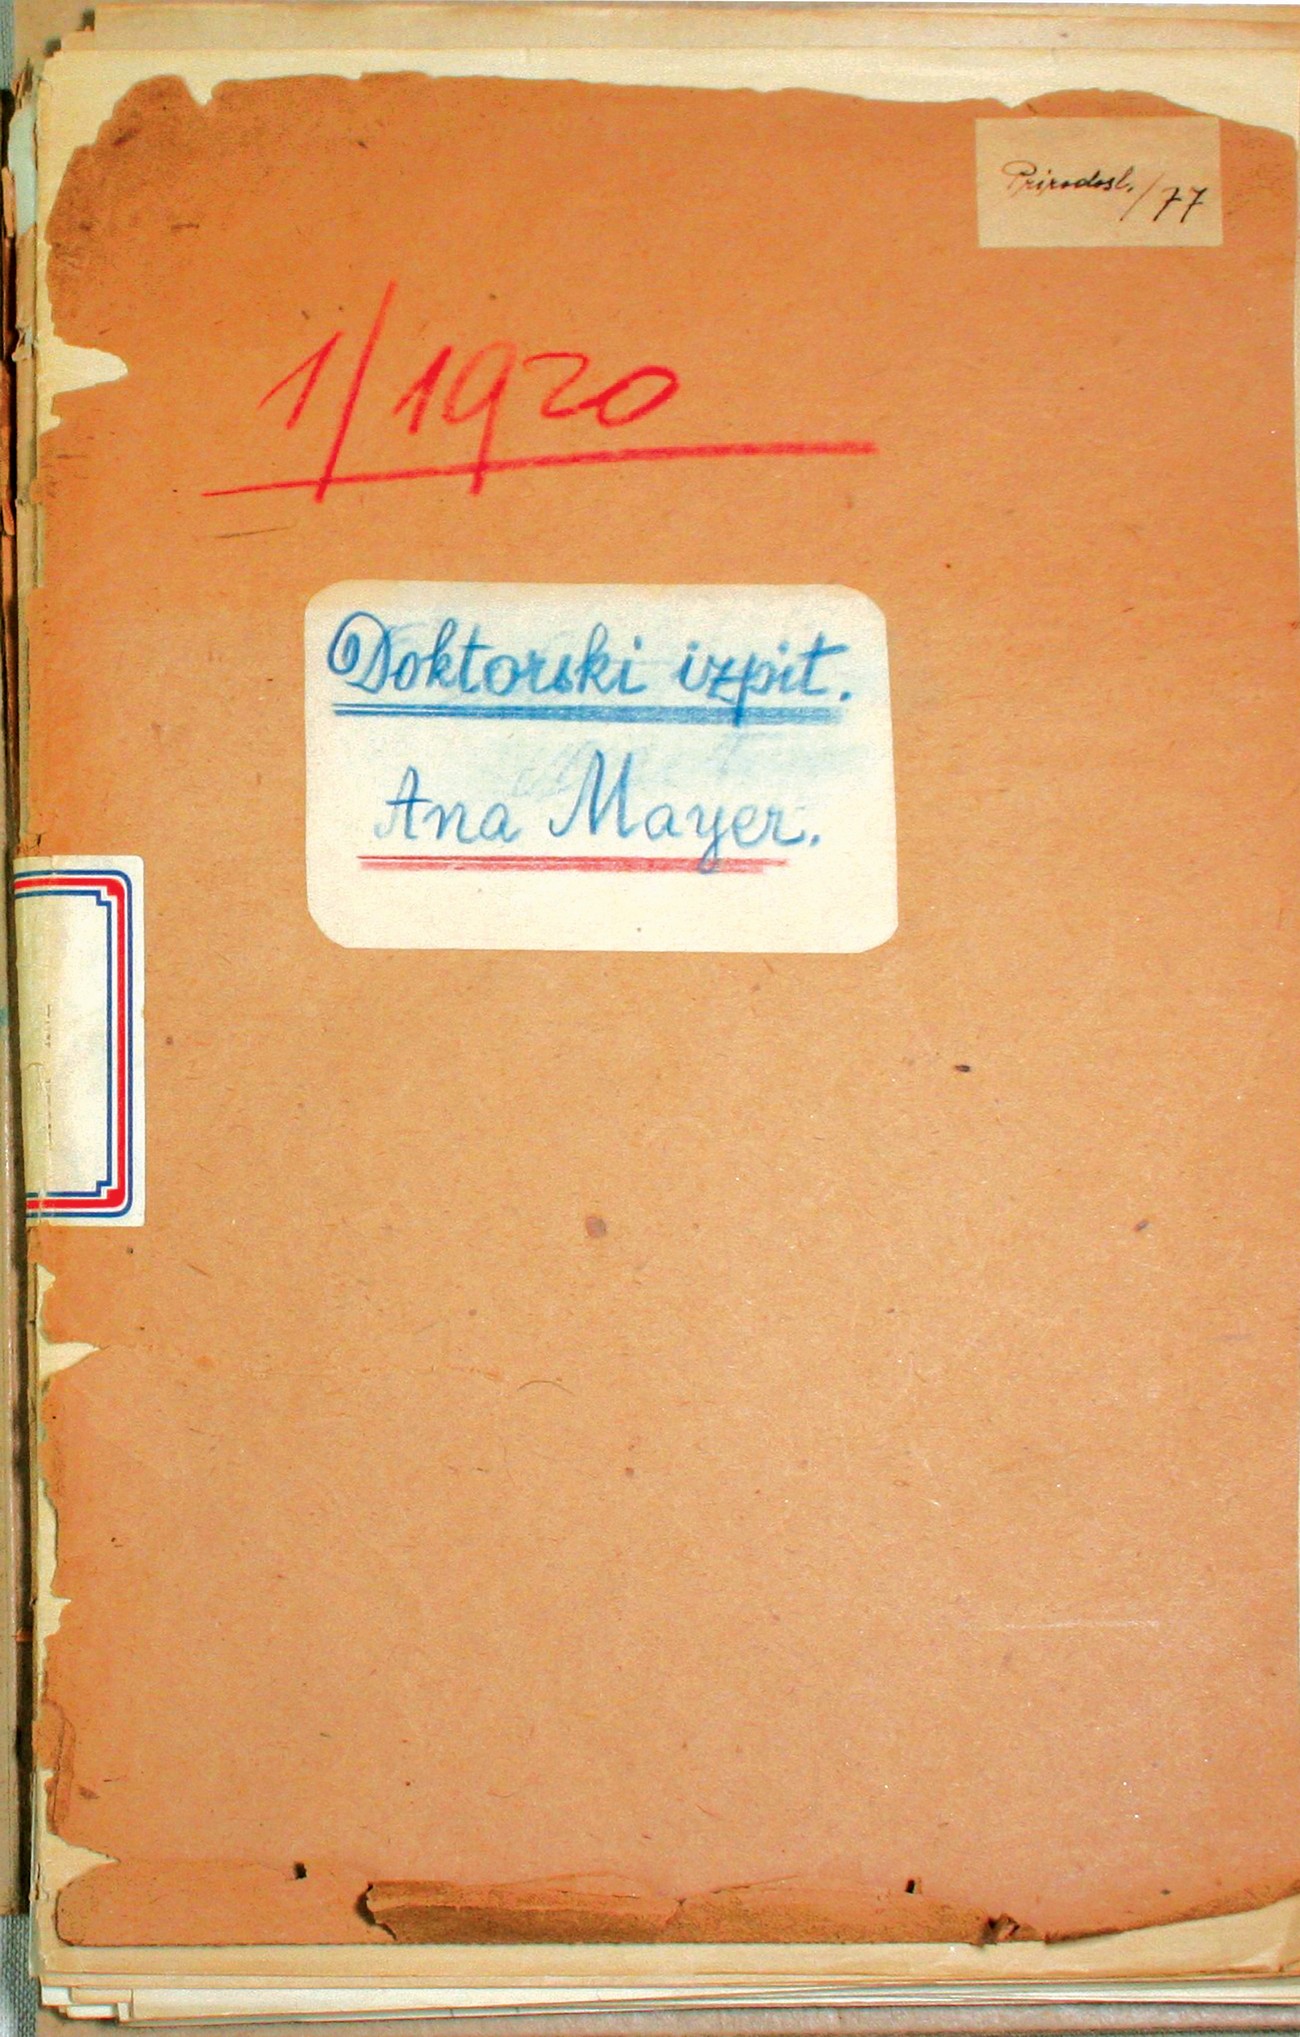 Prirodosl./77
1/1920
Doktorski izpit.
Ana Mayer.